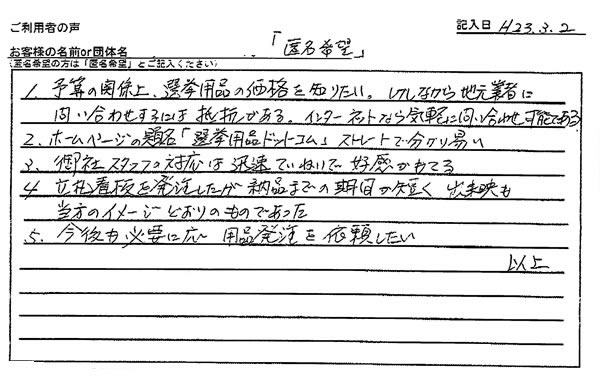 ご利用者の声
記入日 H23.3.2
お客様の名前or団体名 「匿名希望」
(匿名希望の方は「匿名希望」とご記入ください)
1. 予算の関係上、選挙用品の価格を知りたい。しかしながら地元業者に
問い合わせするには 抵抗がある。インターネットなら気軽に問い合わせ可能である
2. ホームページの題名「選挙用品ドットコム」ストレートで分かり易い
3. 御社スタッフの対応は 迅速ていねいで 好感がもてる
4 立札看板を発注したが 納品までの期日が短く 出来映も
当方のイメージどおりのものであった
5. 今後も必要に応じ 用品発注を依頼したい
以上